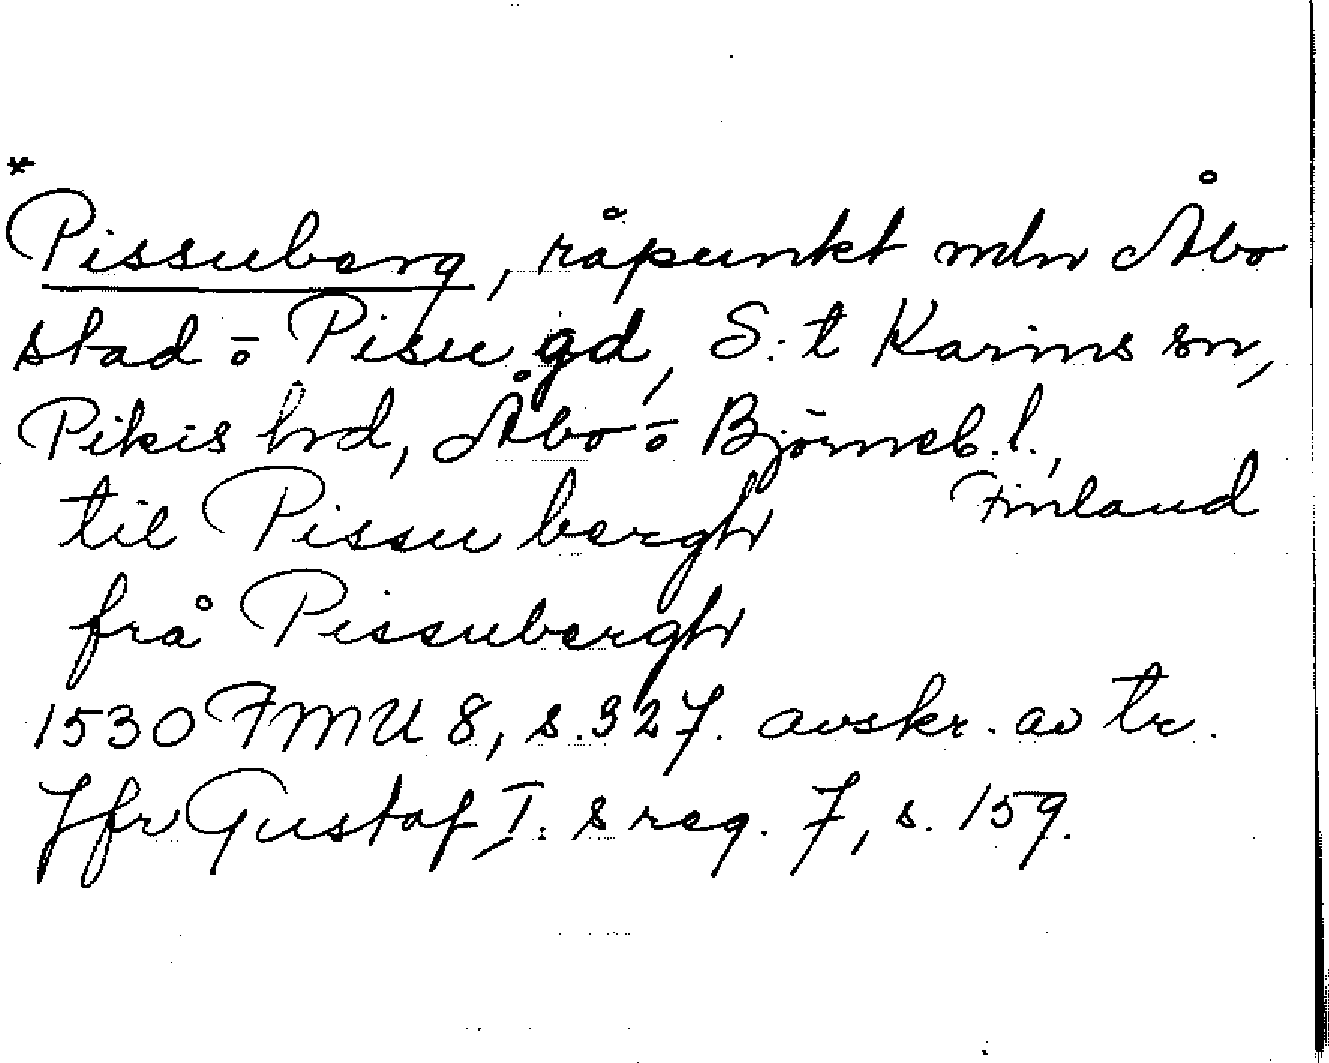 *
Pissuberg, råpunkt mln Åbo
stad o Pisu gd, S:t Karins sn,
Pikis hrd, Åbo o Björneb. l.,
Finland
til Pissu bergh
frå Pissubergh
1530 FMU 8, s. 327. avskr. av tr.
Jfr Gustaf I:s reg. 7, s. 159.